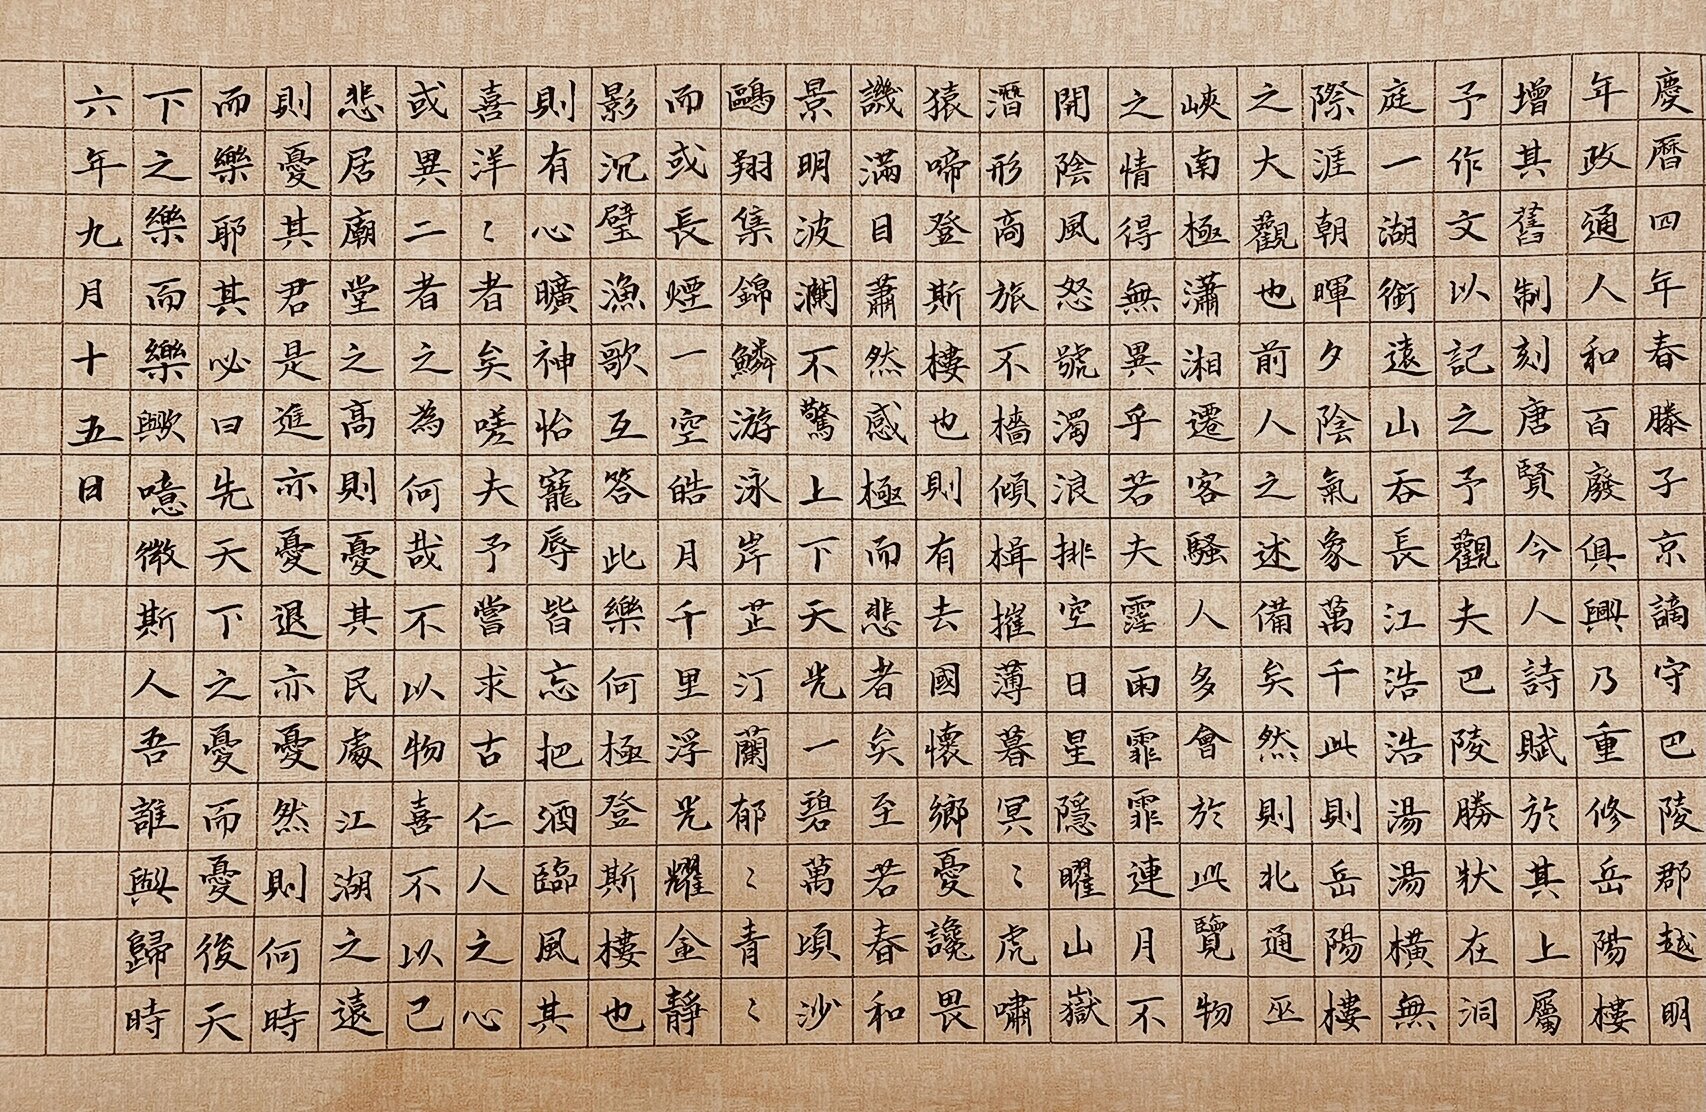 慶曆四年春滕子京謫守巴陵郡越明
年政通人和百廢俱興乃重修岳陽樓
增其舊制刻唐賢今人詩賦於其上屬
予作文以記之予觀夫巴陵勝狀在洞
庭一湖銜遠山吞長江浩浩湯湯橫無
際涯朝暉夕陰氣象萬千此則岳陽樓
之大觀也前人之述備矣然則北通巫
峽南極瀟湘遷客騷人多會於此覽物
之情得無異乎若夫霪雨霏霏連月不
開陰風怒號濁浪排空日星隱曜山嶽
潛形商旅不檣傾楫摧薄暮冥〻虎嘯
猿啼登斯樓也則有去國懷鄉憂讒畏
譏滿目蕭然感極而悲者矣至若春和
景明波瀾不驚上下天光一碧萬頃沙
鷗翔集錦鱗游泳岸芷汀蘭郁〻青〻
而或長煙一空皓月千里浮光耀金靜
影沉璧漁歌互答此樂何極登斯樓也
則有心曠神怡寵辱皆忘把酒臨風其
喜洋〻者矣嗟夫予嘗求古仁人之心
或異二者之為何哉不以物喜不以己
悲居廟堂之高則憂其民處江湖之遠
則憂其君是進亦憂退亦憂然則何時
而樂耶其必曰先天下之憂而憂後天
下之樂而樂歟噫微斯人吾誰與歸時
六年九月十五日